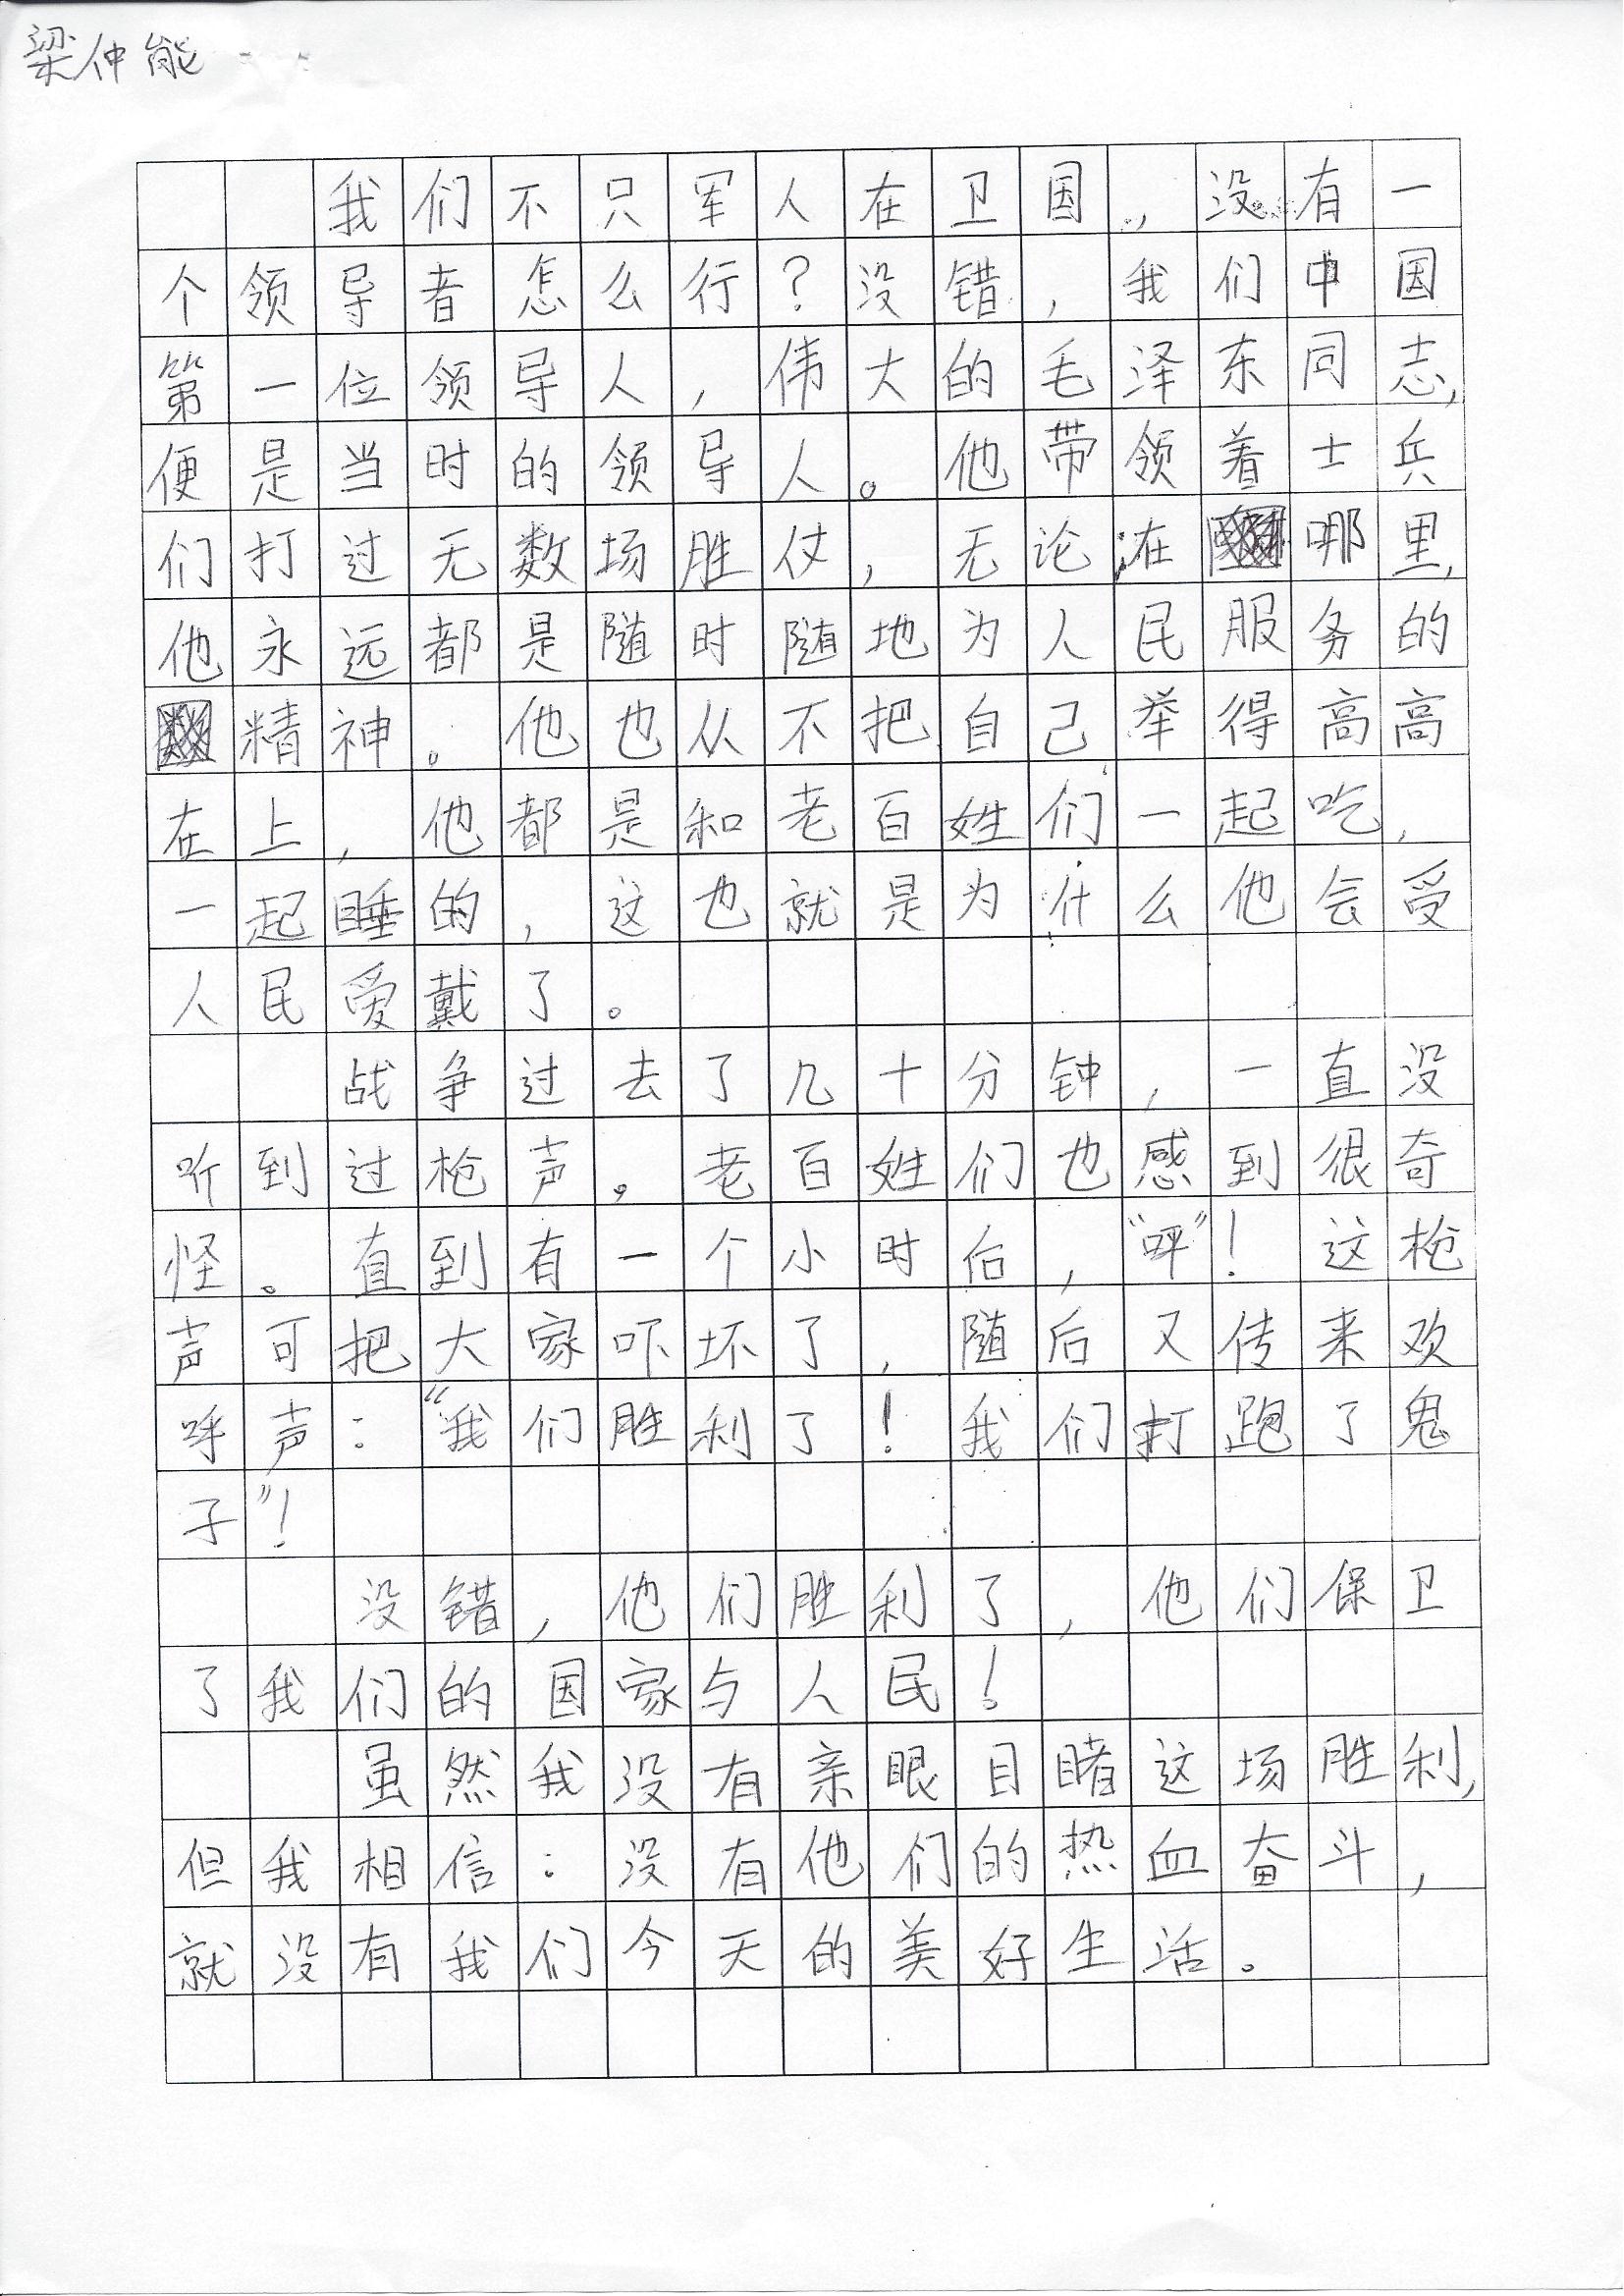 梁仲能
我们不只军人在卫国，没有一
个领导者怎么行？没错，我们中国
第一位领导人，伟大的毛泽东同志，
便是当时的领导人。他带领着士兵
们打过无数场胜仗，无论在哪里，
他永远都是随时随地为人民服务的
精神。他也从不把自己举得高高
在上，他都是和老百姓们一起吃，
一起睡的，这也就是为什么他会受
人民爱戴了。
战争过去了几十分钟，一直没
听到过枪声。老百姓们也感到很奇
怪。直到有一个小时后，“呯”！这枪
声可把大家吓坏了，随后又传来欢
呼声：“我们胜利了！我们打跑了鬼
子”！
没错，他们胜利了，他们保卫
了我们的国家与人民！
虽然我没有亲眼目睹这场胜利，
但我相信：没有他们的热血奋斗，
就没有我们今天的美好生活。